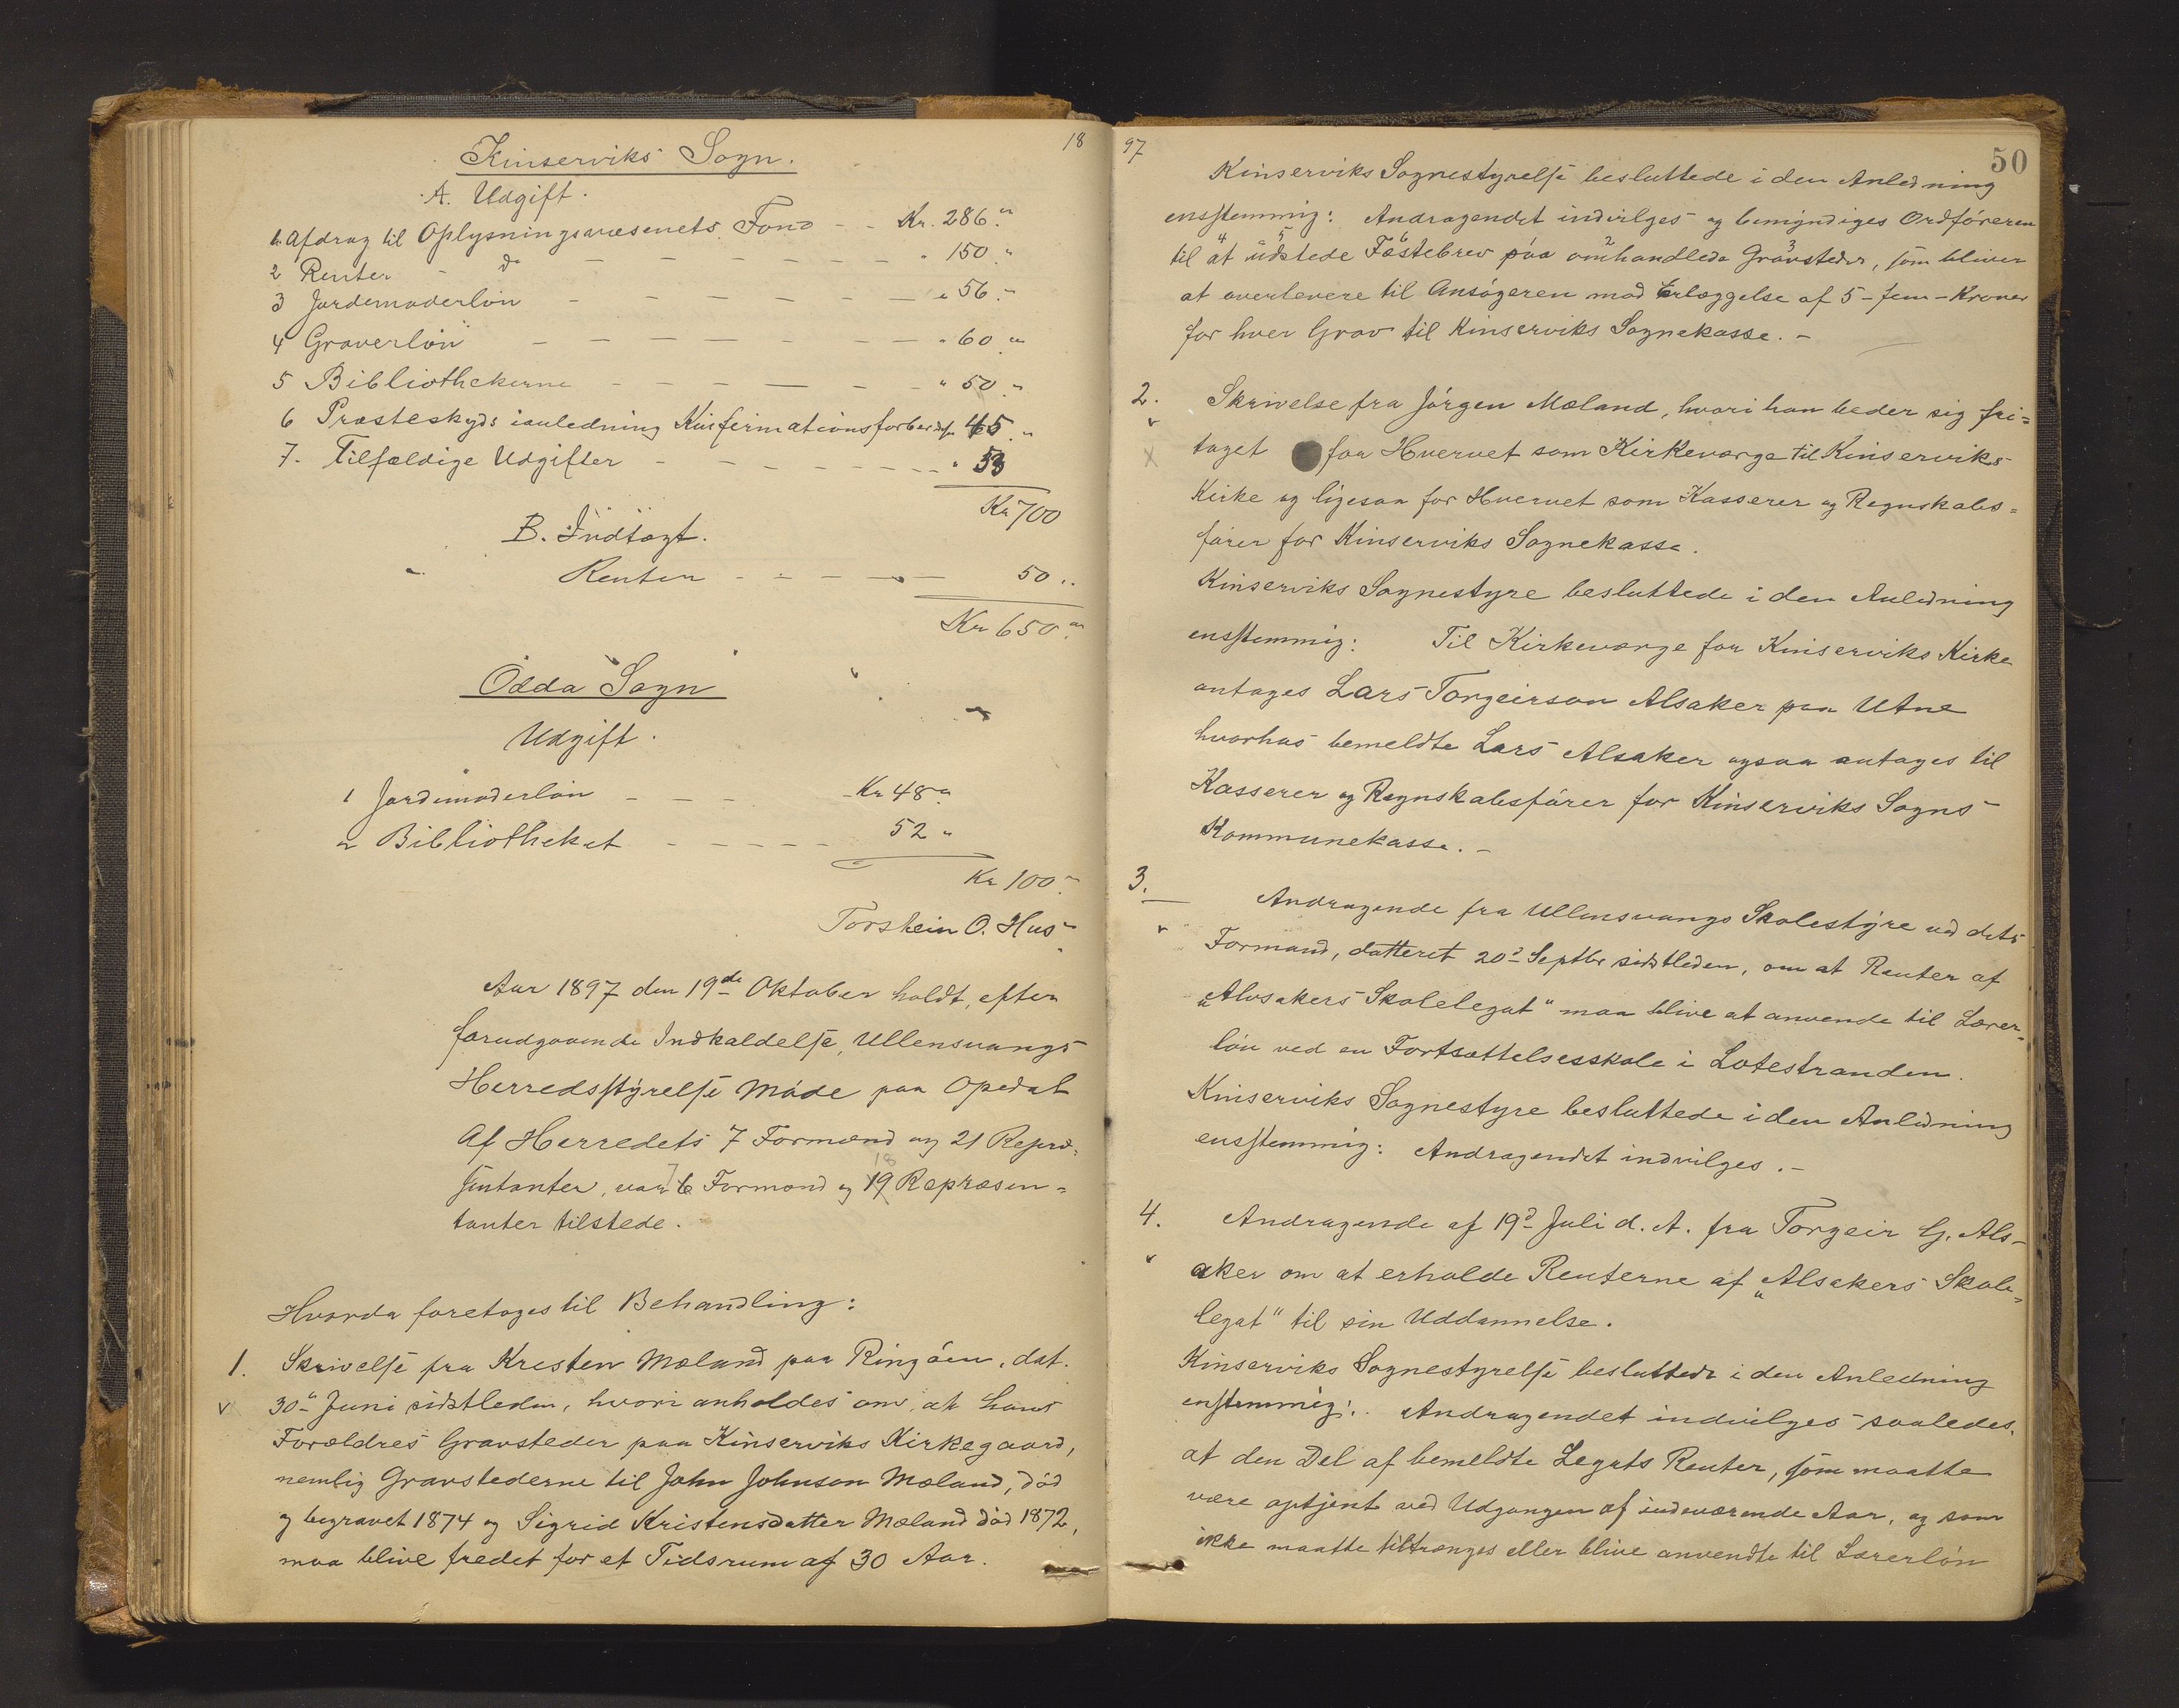 18
Kinserviks Sogn.
A. Udgift.
1. Afdrag til Oplysningsvæsenets Fond - - Kr. 286 "
2 Renter - do - - - - - - - " 150 "
3 Jordemoderløn - - - - - - - " 56 -
4 Graverløn - - - - - - - " 60 "
5 Bibliothekerne - - - - - - " 50 "
6 Præsteskyds ianledning Konfirmationsforberedse 45 "
7. Tilfældige Udgifter - - - - - - - " 53
Kr 700
B. Indtægt.
Renten - - - - - 50 "
Kr 650 "
Odda Sogn
Udgift.
1 Jordemoderløn - - - Kr 48 "
2 Bibliotheket - - - - - 52 "
Kr 100 "
Torstein O. Hus
Aar 1897 den 19de Oktober holdt, efter
forudgaaende Indkaldelse, Ullensvangs
Herredsstyrelse Møde paa Opedal
Af Herredets 7 Formænd og 21 Repræ-
sentanter, var 6 Formænd og 19 18 Repræsen-
tanter tilstede.
Hvorda foretoges til Behandling:
1. Skrivelse fra Kristen Mæland paa Ringøen, dat.
v 30" Juni sidstleden, hvori anholdes om, at hans
Forældres Gravsteder paa Kinserviks Kirkegaard,
nemlig Gravstederne til John Johnson Mæland, død
og begravet 1874 og Sigrid Kristensdatter Mæland død 1872,
maa blive fredet for et Tidsrum af 30 Aar.
97
50
Kinserviks Sognestyrelse besluttede i den Anledning
ensstemmig: Andragendet indvilges og bemyndiges Ordføreren
til at udstede Fæstebrev paa omhandlede Gravsteder, som bliver
at overlevere til Ansøgeren mod Erlæggelse af 5 - fem - Kroner
for hver Grav til Kinserviks Sognekasse. -
2. Skrivelse fra Jørgen Mæland, hvori han beder sig fri=
taget for Hvervet som Kirkeværge til Kinserviks
Kirke og ligesaa for Hvervet som Kasserer og Regnskabs=
fører for Kinserviks Sognekasse.
Kinserviks Sognestyre besluttede i den Anledning
ensstemmig: Til Kirkeværge for Kinserviks Kirke
antages Lars Torgeirson Alsaker paa Utne
hvorhos bemeldte Lars Alsaker ogsaa antages til
Kasserer og Regnskabsfører for Kinserviks Sogns
Kommunekasse. -
3. Andragende fra Ullensvangs Skolestyre ved dets
v Formand, datteret 20d Septbr sidstleden, om at Renter af
"Alsakers Skolelegat" maa blive at anvende til Lærer-
løn ved en Fortsættelsesskole i Lotestranden.
Kinserviks Sognestyre besluttede i den Anledning
ensstemmig: Andragendet indvilges. -
4. Andragende af 19d Juli d. A. fra Torgeir G. Als-
v aker om at erholde Renterne af "Alsakers Skole-
legat" til sin Uddannelse.
Kinserviks Sognestyrelse besluttede i den Anledning
enstemmig: Andragendet indvilges saaledes,
at den Del af bemeldte Legats Renter, som maatte
være optjent ved Udgangen af indeværende Aar, og som
ikke maatte tiltrænges eller blive anvendte til Lærerløn